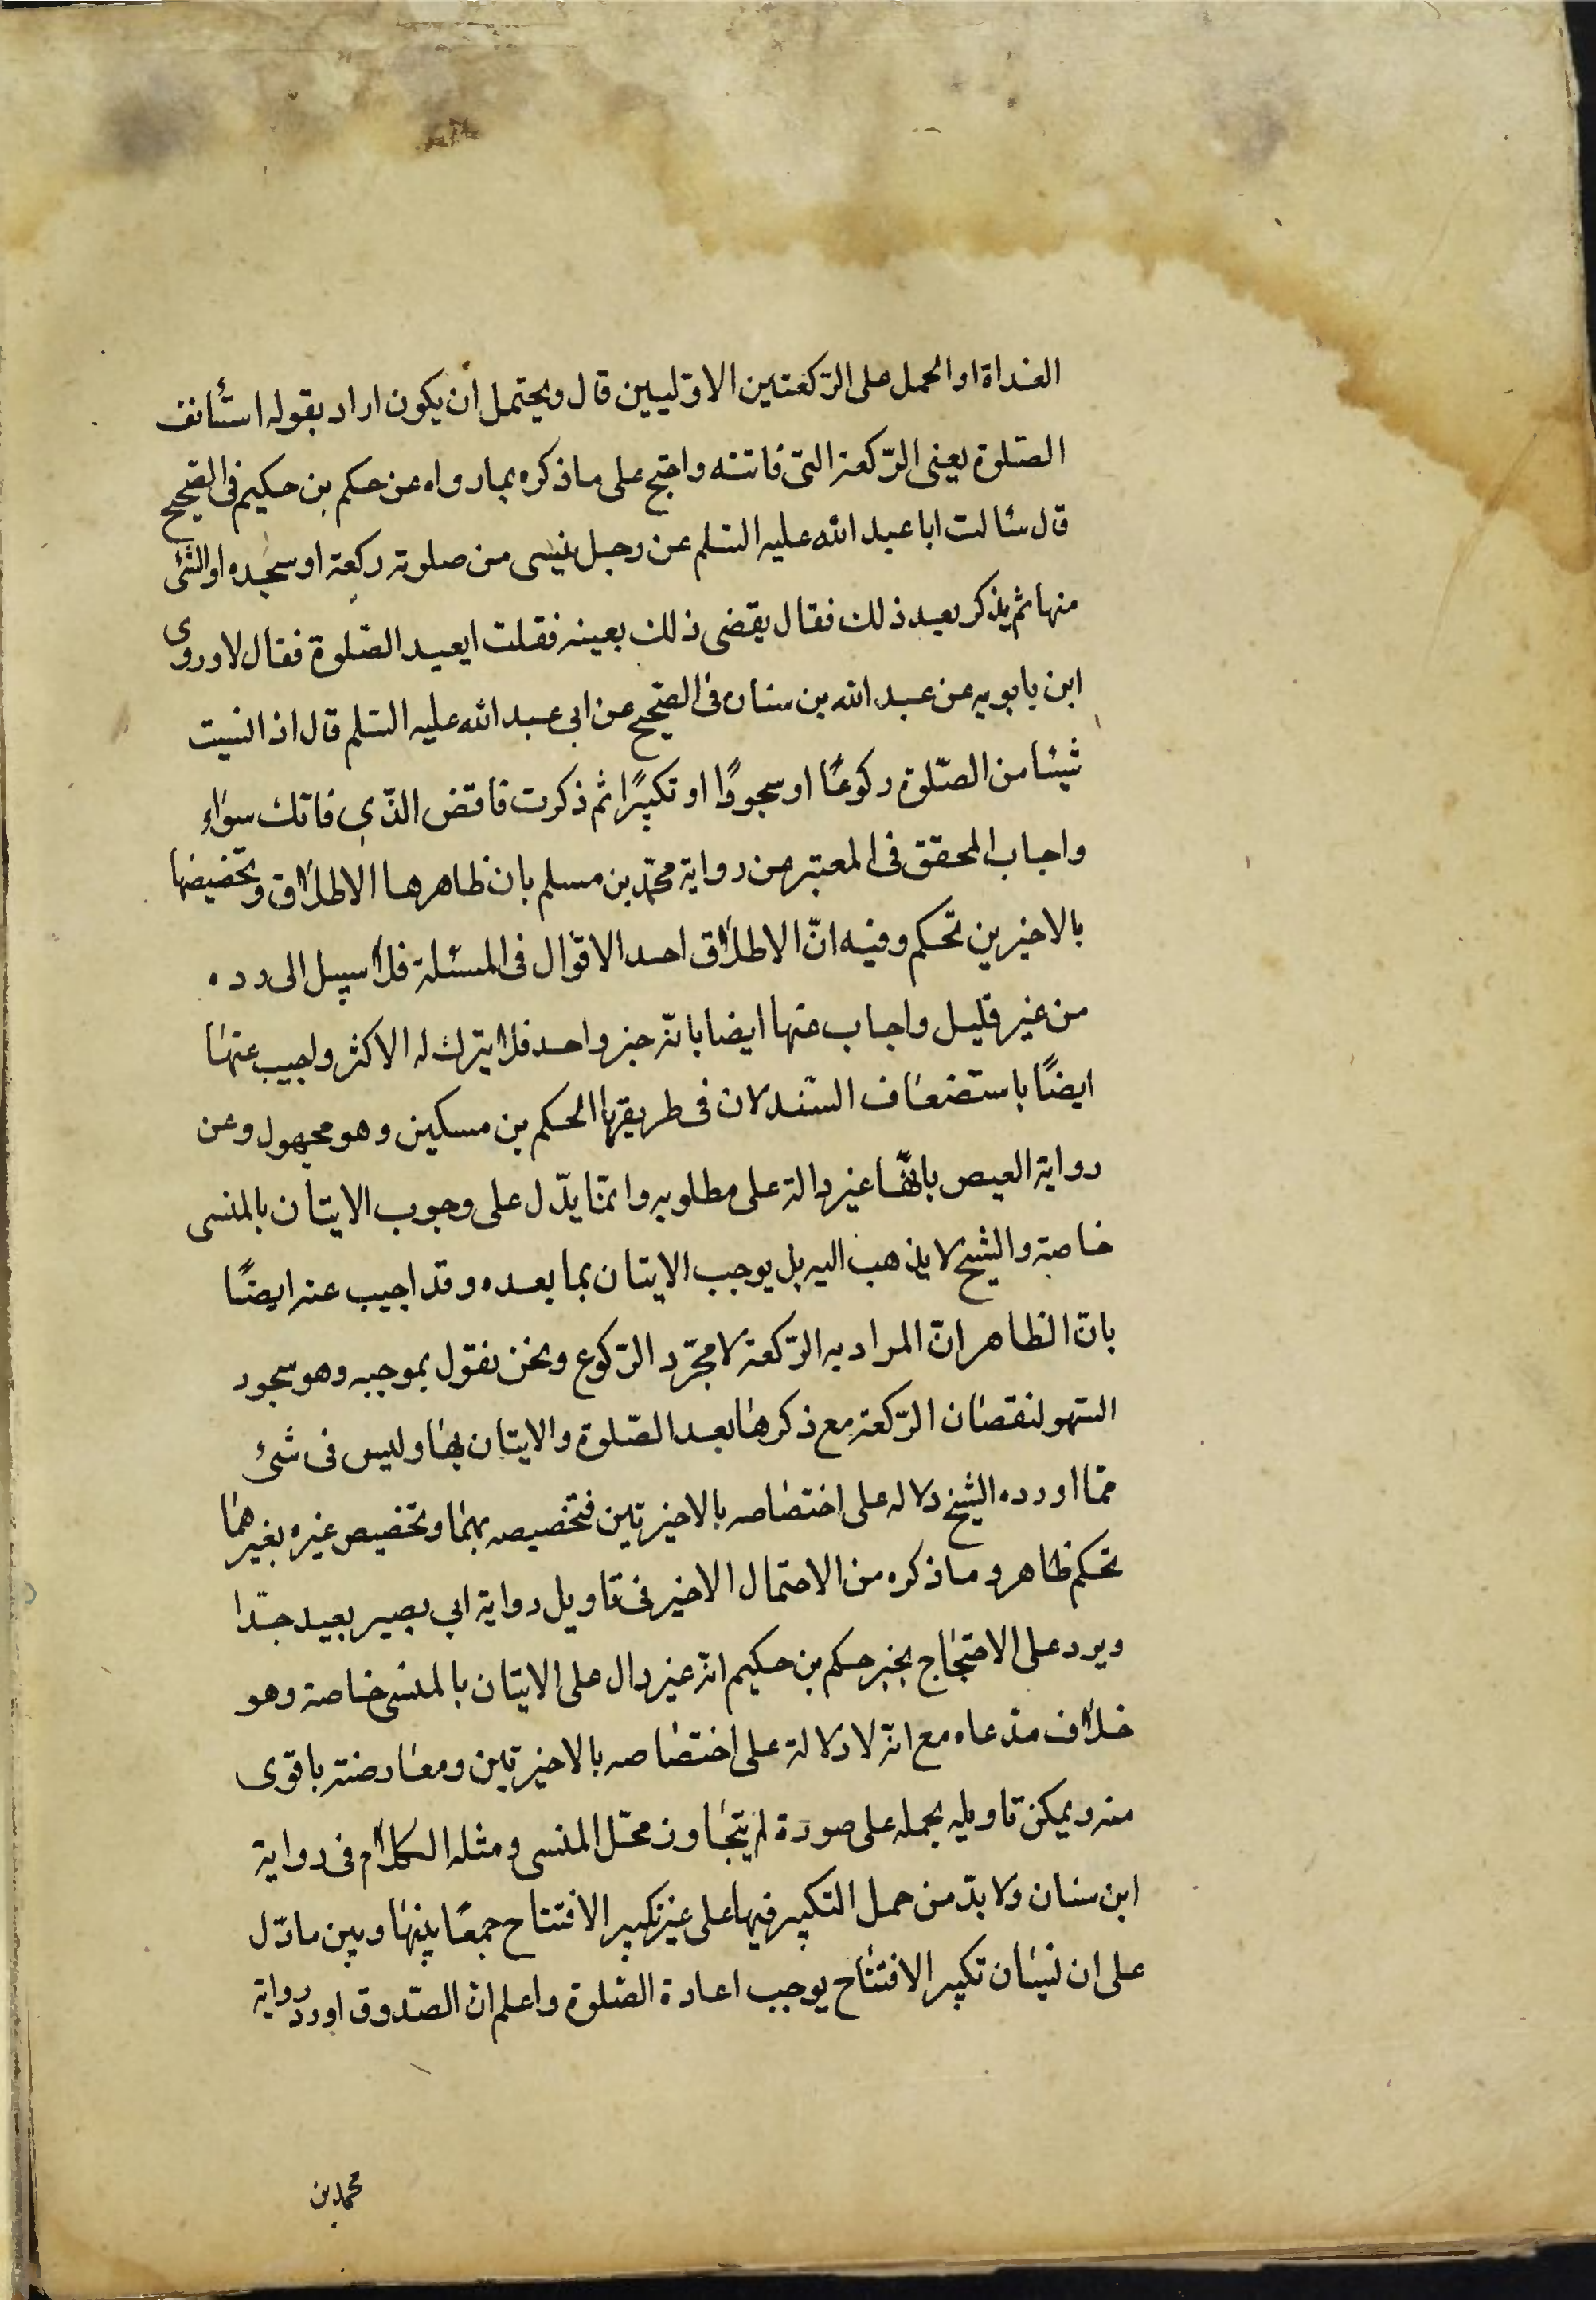 الغداة او الحمل على الرّكعتين الاوّليين قال ويحتمل ان يكون اراد بقوله استأنف
الصّلوة يعنى الرّكعة التى فاتته واحتج على ما ذكره بما رواه عن حكم بن حكيم فى الصّحيح
قال سئالت ابا عبد الله عليه السّلم عن رجل نيسى من صلوته ركعة او سجده او الشئ
منها ثم يذكر بعد ذلك فقال يقضى ذلك بعينه فقلت ايعيد الصّلوة فقال لا وروى
ابن بابويه عن عبد الله بن سنان فى الصّحيح عن ابى عبد الله عليه السّلم قال اذا نسيت
شيئا من الصّلوة ركوعًا او سجودًا او تكبيرًا ثم ذكرت فاقض الذّى فاتك سواء
واجاب المحقق فى المعتبر من رواية محمّد بن مسلم بان ظاهرها الاطلاق وتخصيصها
بالاخيرين تحكم وفيه انّ الاطلاق احد الاقوال فى المسئلة فلا سبيل الى رده
من غير قليل واجاب عنها ايضا بانّه خبر واحد فلا يترك له الاكثر واجيب عنها
ايضًا باستضعاف السّند لان فى طريقها الحكم بن مسكين وهو مجهول وعن
رواية العيص بانّها غير دالة على مطلوبه وانمّا يدّل على وجوب الايتان بالمنسى
خاصة والشيخ لا يذهب اليه بل يوجب الايتان بما بعده وقد اجيب عنه ايضًا
بانّ الظاهر انّ المراد به الرّكعة لا مجرّد الرّكوع ونحن نقول بموجبه وهو سجود
السّهو لنقصان الرّكعة مع ذكرها بعد الصّلوة والايتان بها وليس فى شئ
ممّا اورده الشيخ دلاله على اختصاصه بالاخيرتين فتخصيصه بهما وتخصيص غيره بغيرهما
تحكم ظاهر وما ذكره من الاحتمال الاخير فى تاويل رواية ابى بصير بعيد جدّا
ويرد على الاحتجاج بخبر حكم بن حكيم انّه غير دال على الايتان بالمنسى خاصة وهو
خلاف مدّعاه مع انّه لا دلالة على اختصاصه بالاخيرتين ومعارضته باقوى
منه ويمكن تاويله بحمله على صورة لم يتجاوز محّل المنسى ومثله الكلام فى رواية
ابن سنان ولا بدّ من حمل التكبير فيها على غير تكبير الافتتاح جمعًا بينها وبين ما دّل
على ان نسيان تكبير الافتتاح يوجب اعادة الصّلوة واعلم انّ الصّدوق اورد رواية
محمد بن